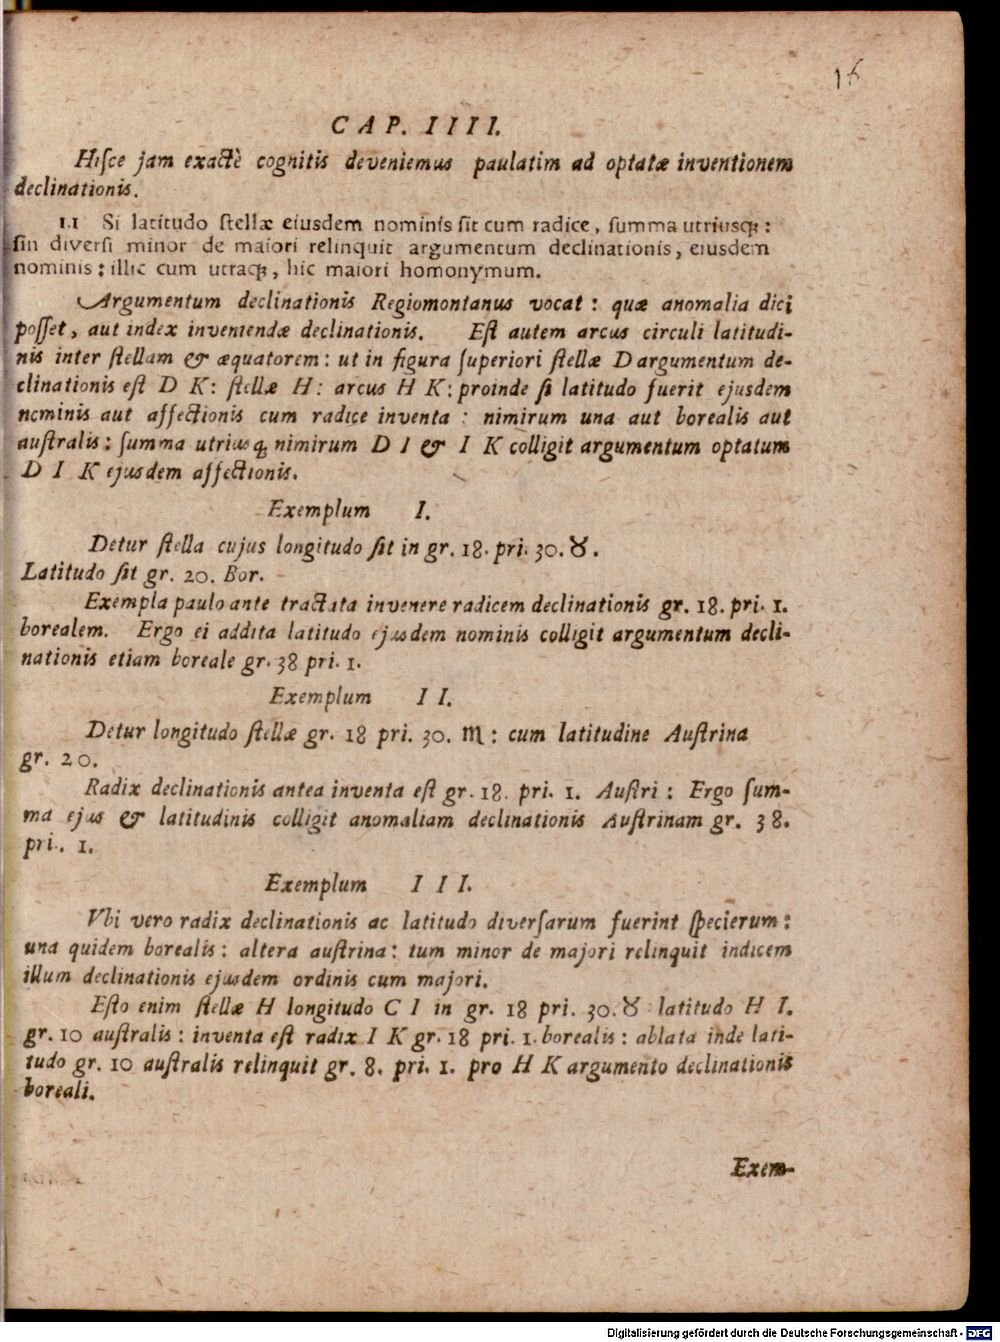 16
CAP. IIII.
Hisce jam exactè cognitis deveniemus paulatim ad optatæ inventionem
declinationis.
11 Si latitudo stellæ eiusdem nominis sit cum radice, summa utriusq́;:
sin diversi minor de maiori relinquit argumentum declinationis, eiusdem
nominis: illic cum utraq́;, hic maiori homonymum.
Argumentum declinationis Regiomontanus vocat: quæ anomalia dici
posset, aut index inveniendæ declinationis. Est autem arcus circuli latitudi-
nis inter stellam & æquatorem: ut in figura superiori stellæ D argumentum de-
clinationis est D K: stellæ H: arcus H K: proinde si latitudo fuerit ejusdem
nominis aut affectionis cum radice inventa: nimirum una aut borealis aut
australis: summa utriusq; nimirum D I & I K colligit argumentum optatum
D I K ejusdem affectionis.
Exemplum I.
Detur stella cujus longitudo sit in gr. 18. pri. 30. ♉.
Latitudo sit gr. 20. Bor.
Exempla paulo ante tractata invenere radicem declinationis gr. 18. pri. 1.
borealem. Ergo ei addita latitudo ejusdem nominis colligit argumentum decli-
nationis etiam boreale gr. 38 pri. 1.
Exemplum II.
Detur longitudo stellæ gr. 18 pri. 30. ♏: cum latitudine Austrina
gr. 20.
Radix declinationis antea inventa est gr. 18. pri. 1. Austri: Ergo sum-
ma ejus & latitudinis colligit anomaliam declinationis Austrinam gr. 38.
pri. 1.
Exemplum III.
Vbi vero radix declinationis ac latitudo diversarum fuerint specierum:
una quidem borealis: altera austrina: tum minor de majori relinquit indicem
illum declinationis ejusdem ordinis cum majori.
Esto enim stellæ H longitudo C I in gr. 18 pri. 30. ♉ latitudo H I.
gr. 10 australis: inventa est radix I K gr. 18 pri. 1. borealis: ablata inde lati-
tudo gr. 10 australis relinquit gr. 8. pri. 1. pro H K argumento declinationis
boreali.
Exem-
Digitalisierung gefördert durch die Deutsche Forschungsgemeinschaft - DFG